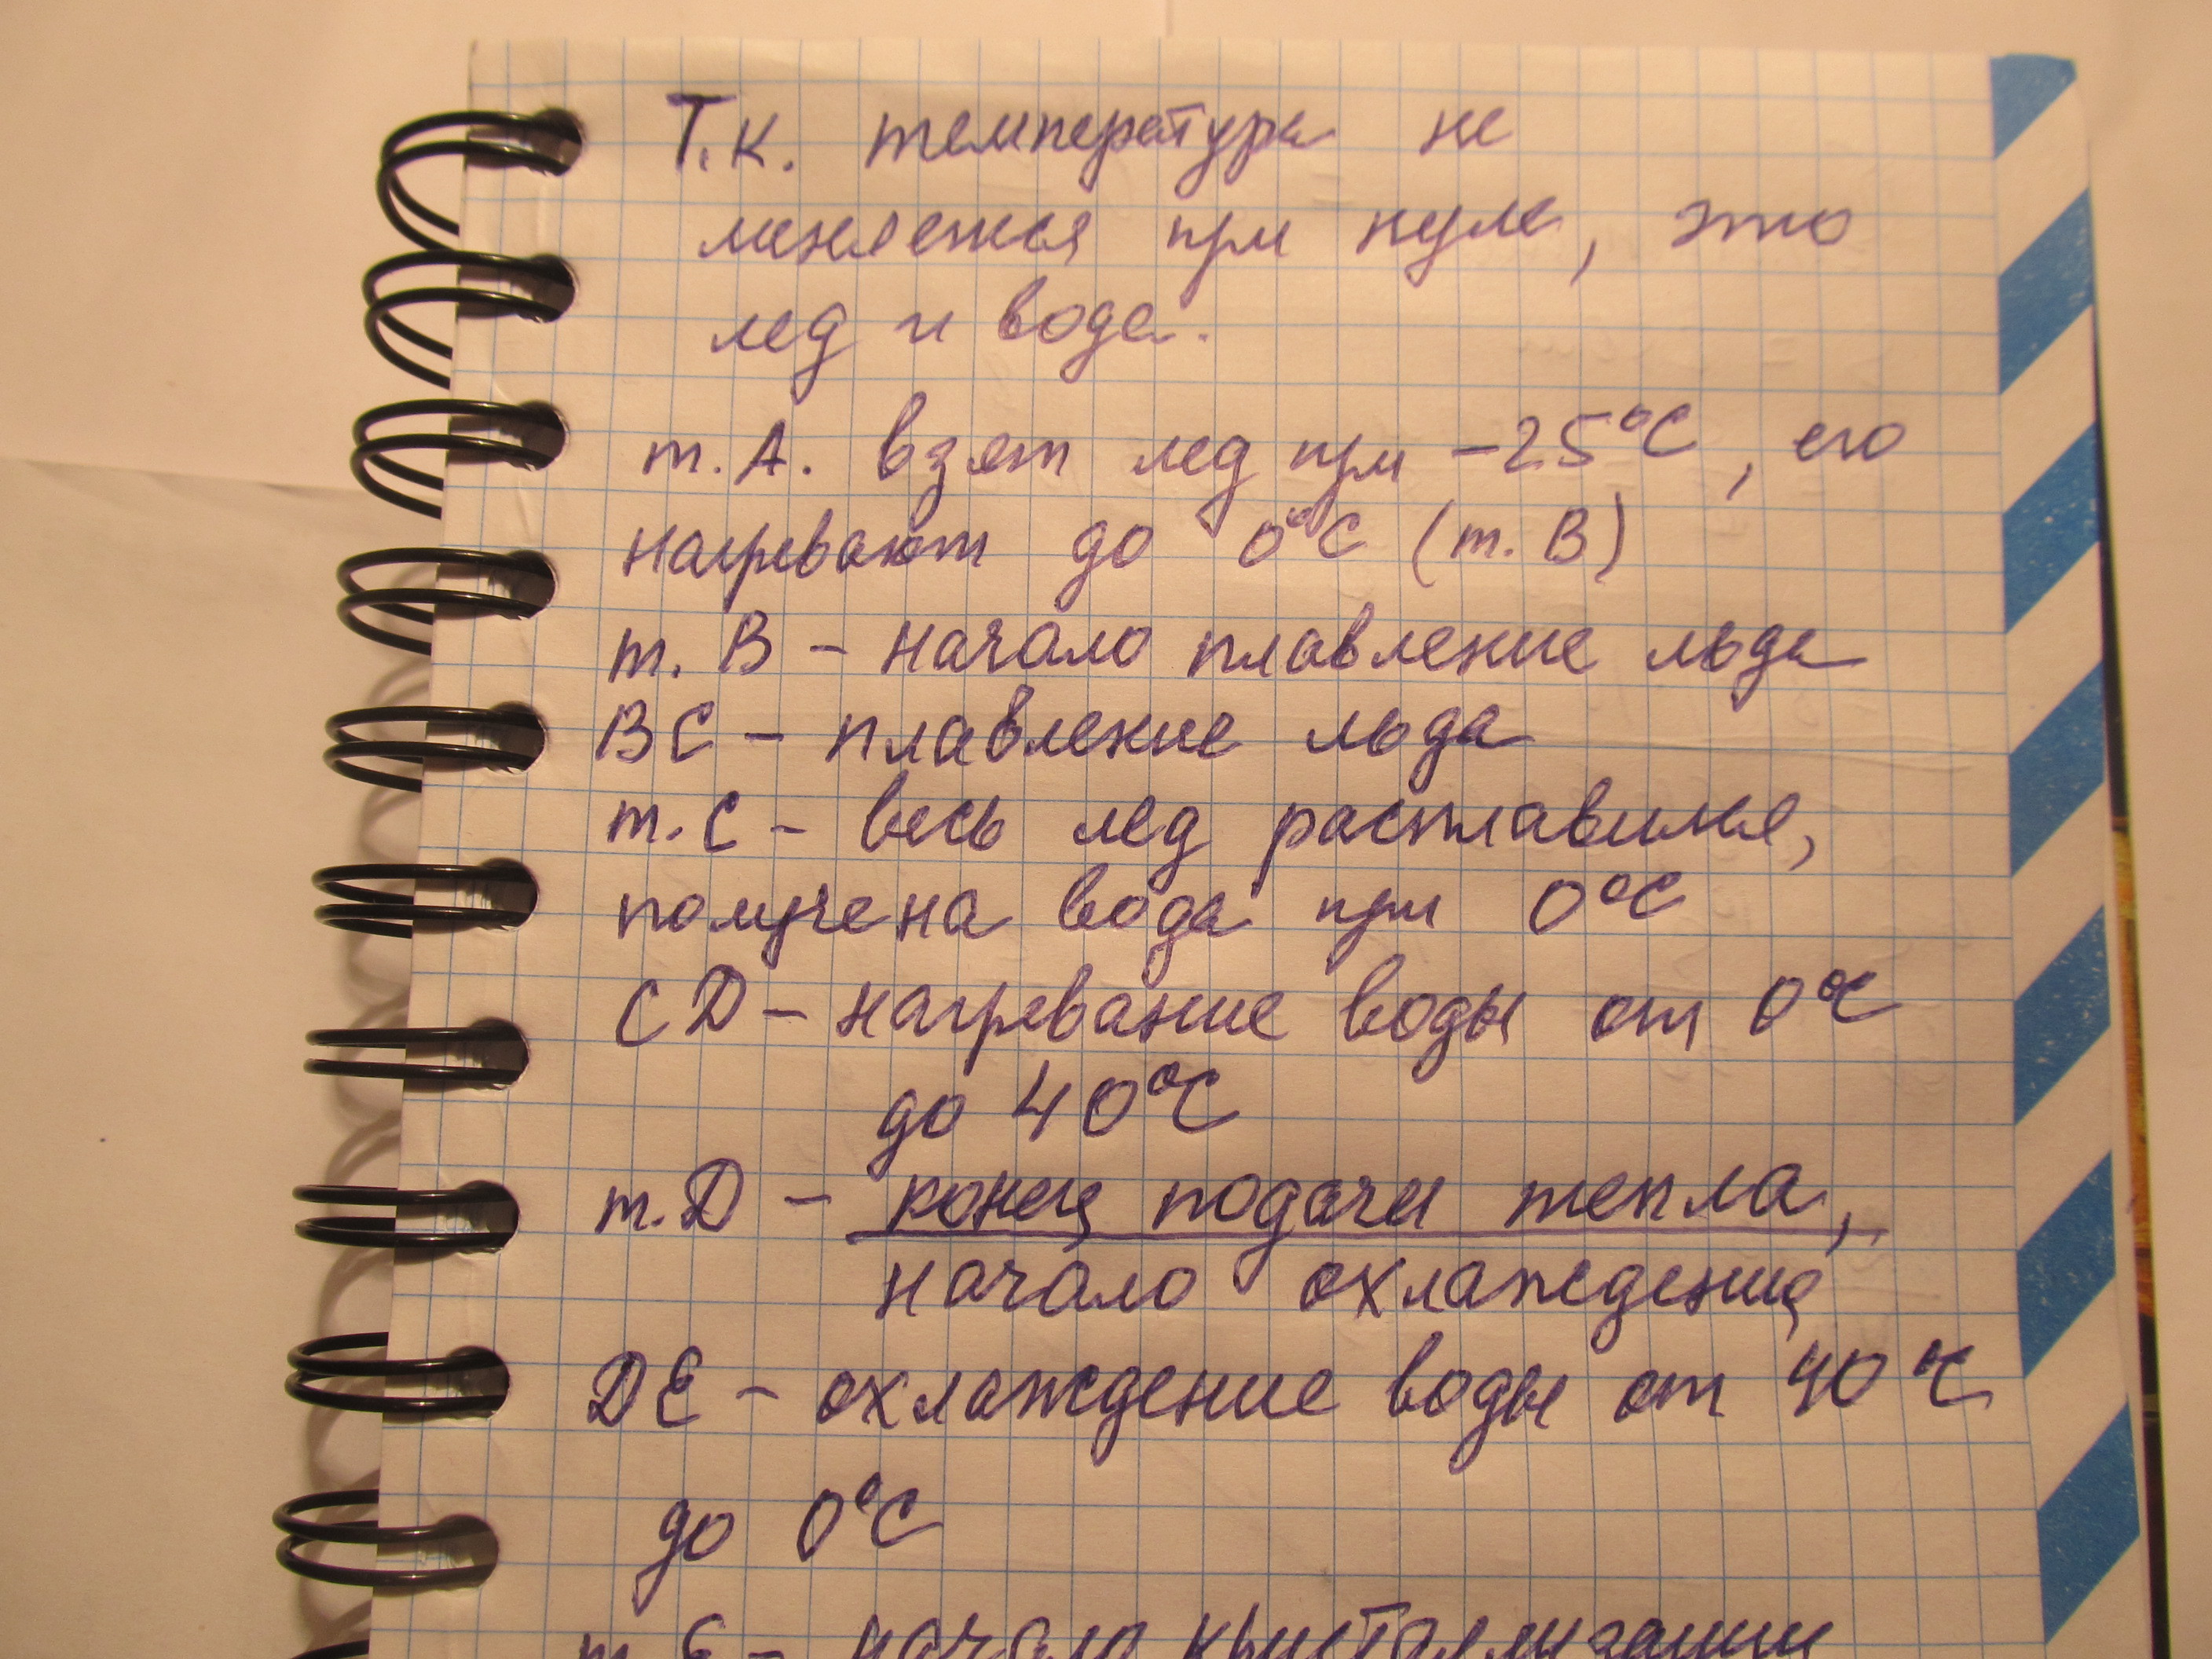 Т.к. температура не
меняется при нуле, это
лед и вода.
т. А. взят лед при -25°С, его
нагревают до 0°С (т. В)
т. В - начало плавление льда
ВС - плавление льда
т. С - весь лед расплавился,
получена вода при 0°С
CD - нагревание воды от 0°С
до 40°С
т. D - конец подачи тепла,
начало охлаждения
DE - охлаждение воды от 40°С
до 0°С
т. Е - начало кристаллизации